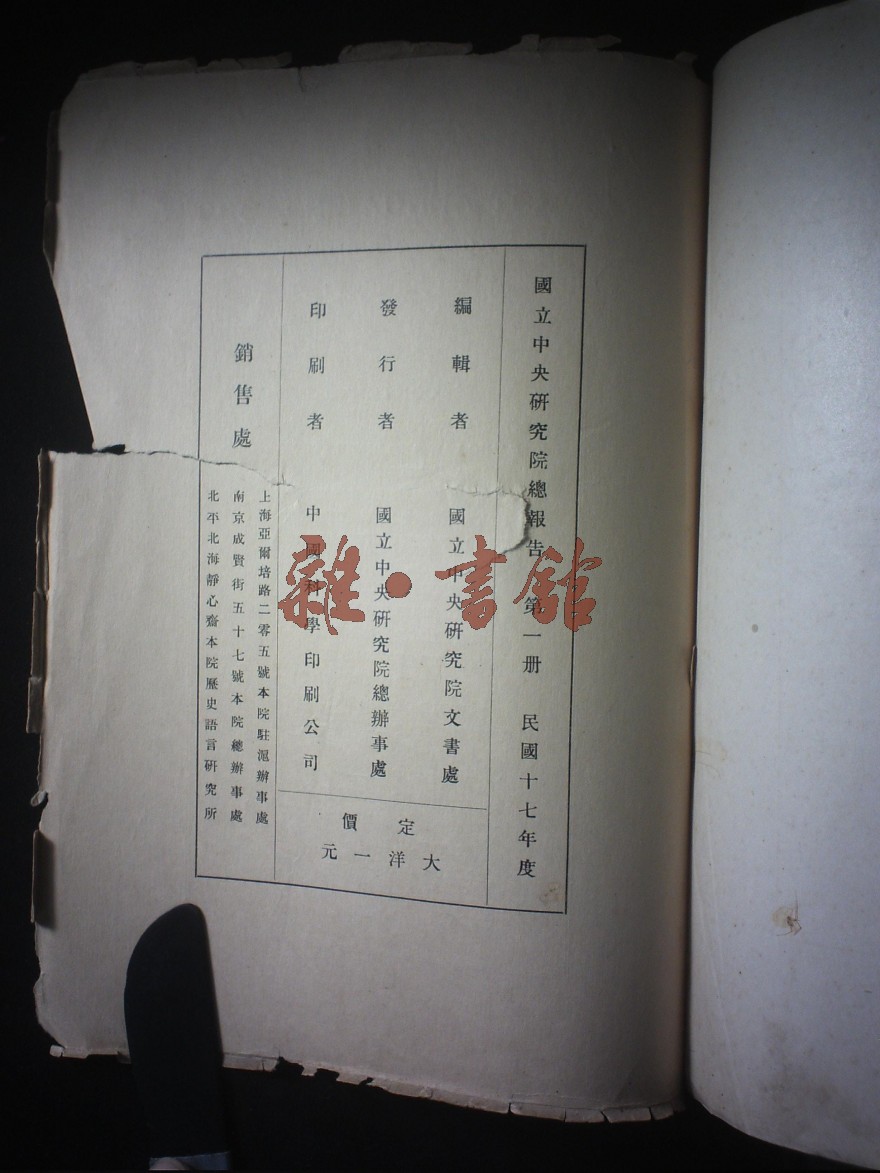 國立中央研究院總報告 第一册 民國十七年度
編輯者 國立中央研究院文書處
發行者 國立中央研究院總辦事處
印刷者 中國科學印刷公司
定價
大洋一元
銷售處
上海亞爾培路二零五號本院駐滬辦事處
南京成賢街五十七號本院總辦事處
北平北海靜心齋本院歷史語言研究所
雜·書館